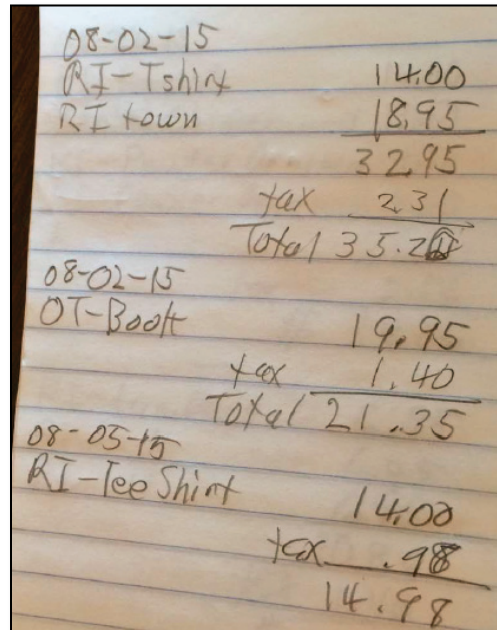 08-02-15
RI-Tshirt 14.00
RI town 18.95
32.95
tax 2.31
Total 35.26
08-02-15
OT-Book 19.95
tax 1.40
Total 21.35
08-05-15
RI-Tee Shirt 14.00
tax .98
14.98